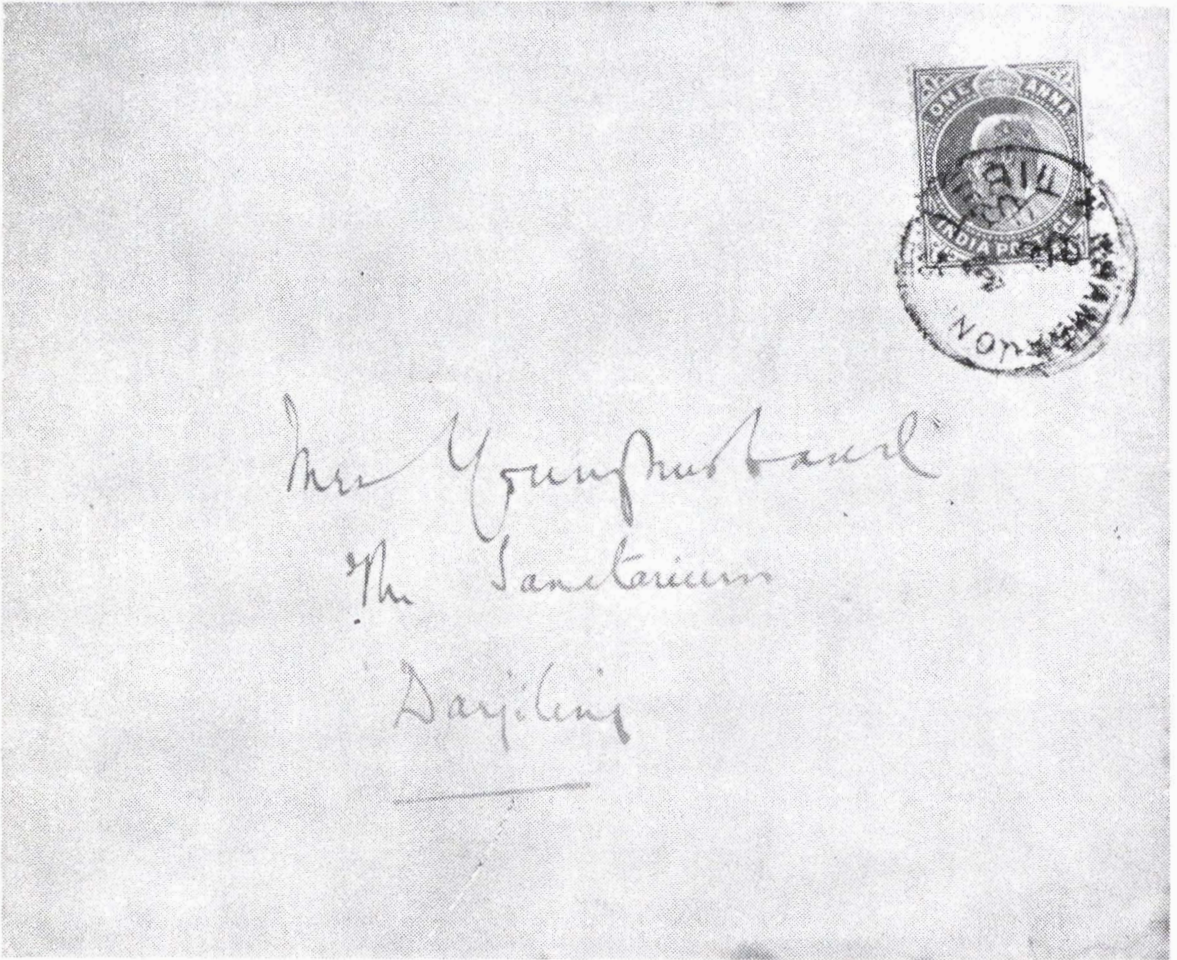 ONE ANNA
INDIA POSTAGE
Mrs Younghusband
The Sanitarium
Darjiling